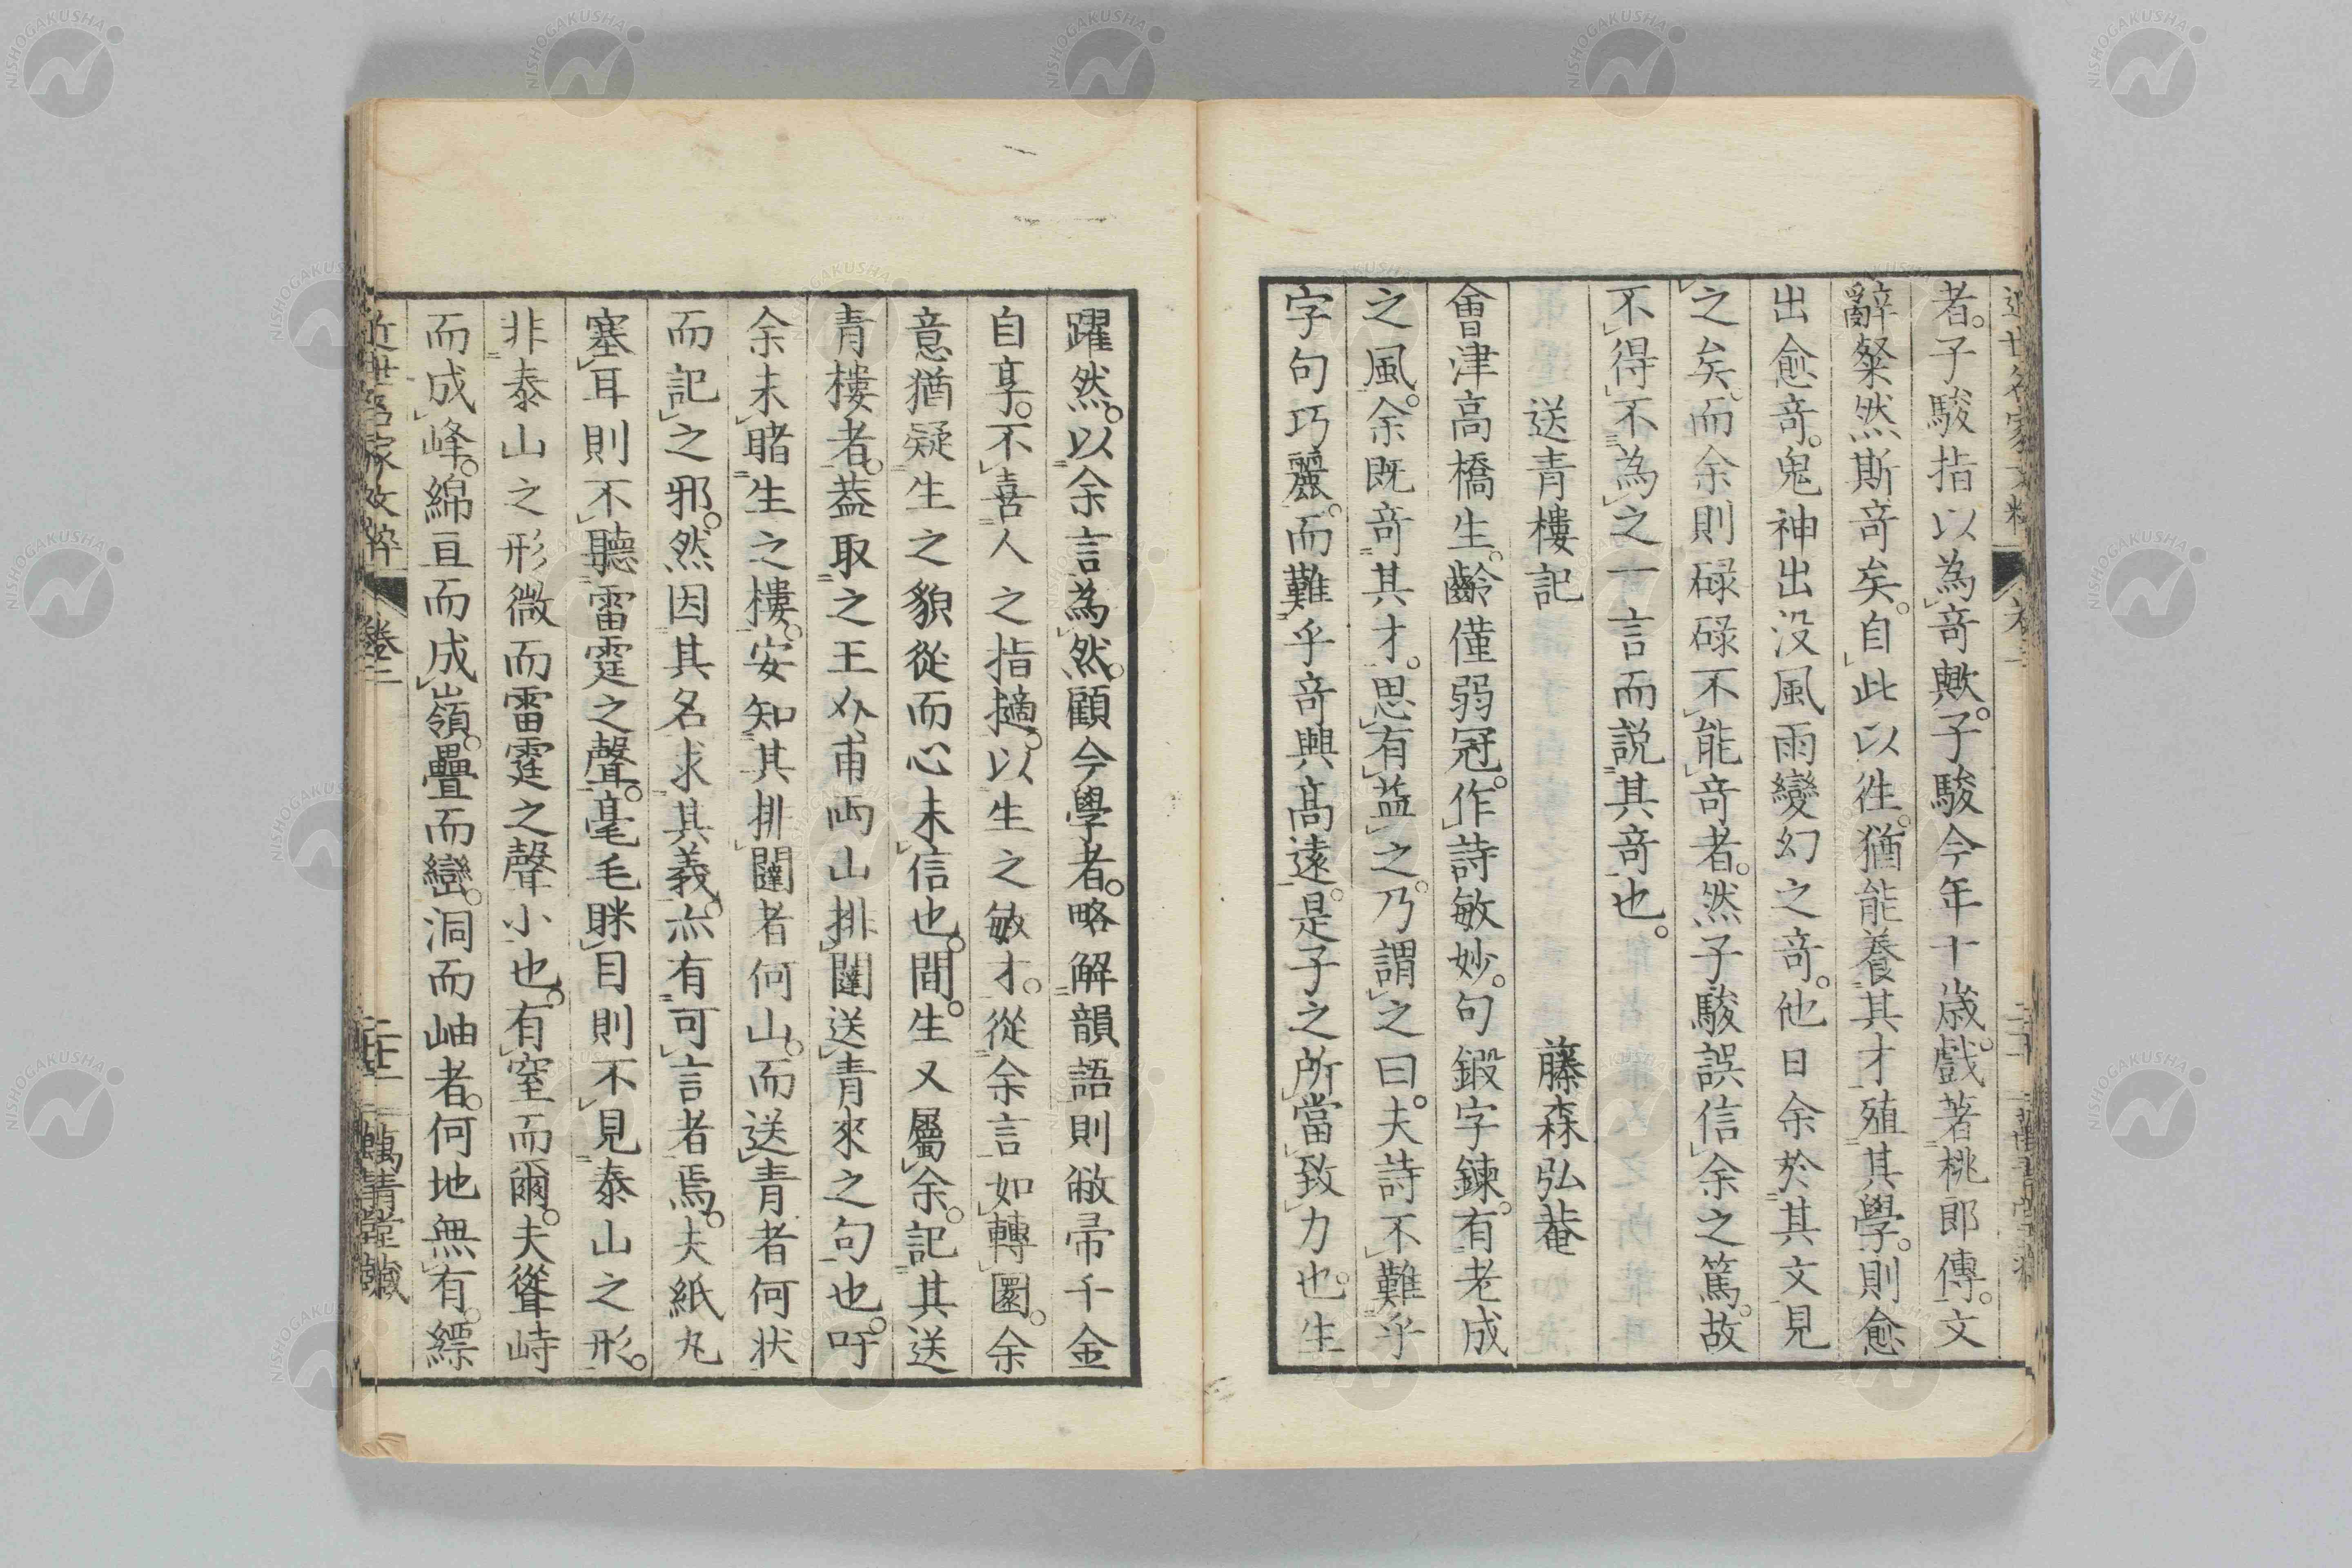 者。子駿指以為竒歟。子駿今年十歳。戲著桃郎傳。文
辭粲然斯竒矣。自此以徃。猶能養其才殖其學。則愈
出愈竒。鬼神出没風雨變幻之竒。他日余於其文見
之矣。而余則碌碌不能竒者。然子駿誤信余之篤。故
不得不為之一言而説其竒也。
送青樓記 藤森弘菴
會津高橋生。齡僅弱冠。作詩敏妙。句鍛字鍊。有老成
之風。余既竒其才。思有益之。乃謂之曰。夫詩不難乎
字句巧麗。而難乎竒興高遠。是子之所當致力也。生
躍然。以余言為然。顧今學者。略解韻語則敝帚千金
自享。不喜人之指擿。以生之敏才。從余言如轉圜。余
意猶疑生之貌從而心未信也。間。生又屬余。記其送
青樓者。葢取之王介甫両山排闥送青來之句也。吁
余未睹生之樓。安知其排闥者何山。而送青者何状
而記之邪。然因其名求其義。亦有可言者焉。夫紙丸
塞耳則不聽雷霆之聲。毫毛眯目則不見泰山之形。
非泰山之形微而雷霆之聲小也。有窒而爾。夫聳峙
而成峰。綿亘而成嶺。疊而巒。洞而岫者。何地無有。縹
近世名家文粹 卷二 二十一